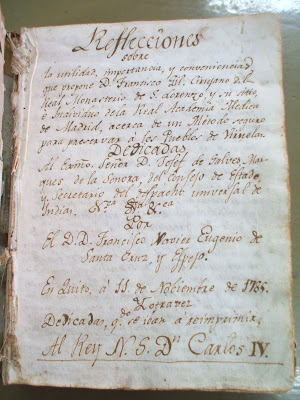 Reflecciones
sobre
la utilidad, importancia, y conveniencias
que propone D. Francisco Gil, Cirujano del
Real Monasterio de S. Lorenzo y su Sitio
e Individuo de la Real Academia Medica
de Madrid, acerca de un Método seguro
para preservar à los Pueblos de Viruelas
Dedicadas
Al Exmo. Señor D. Josef de Galves, Mar-
ques de la Sonora, del Consejo de Estado
y Secretario del Despacho universal de
Indias,
Por
El D. D. Francisco Xavier Eugenio de
Santa Cruz y Espejo.
En Quito, à 11. de Noviembre de 1785.
Dedicadas, q. se iean à reimprimir,
Al Rey N. S. Dn. Carlos IV.